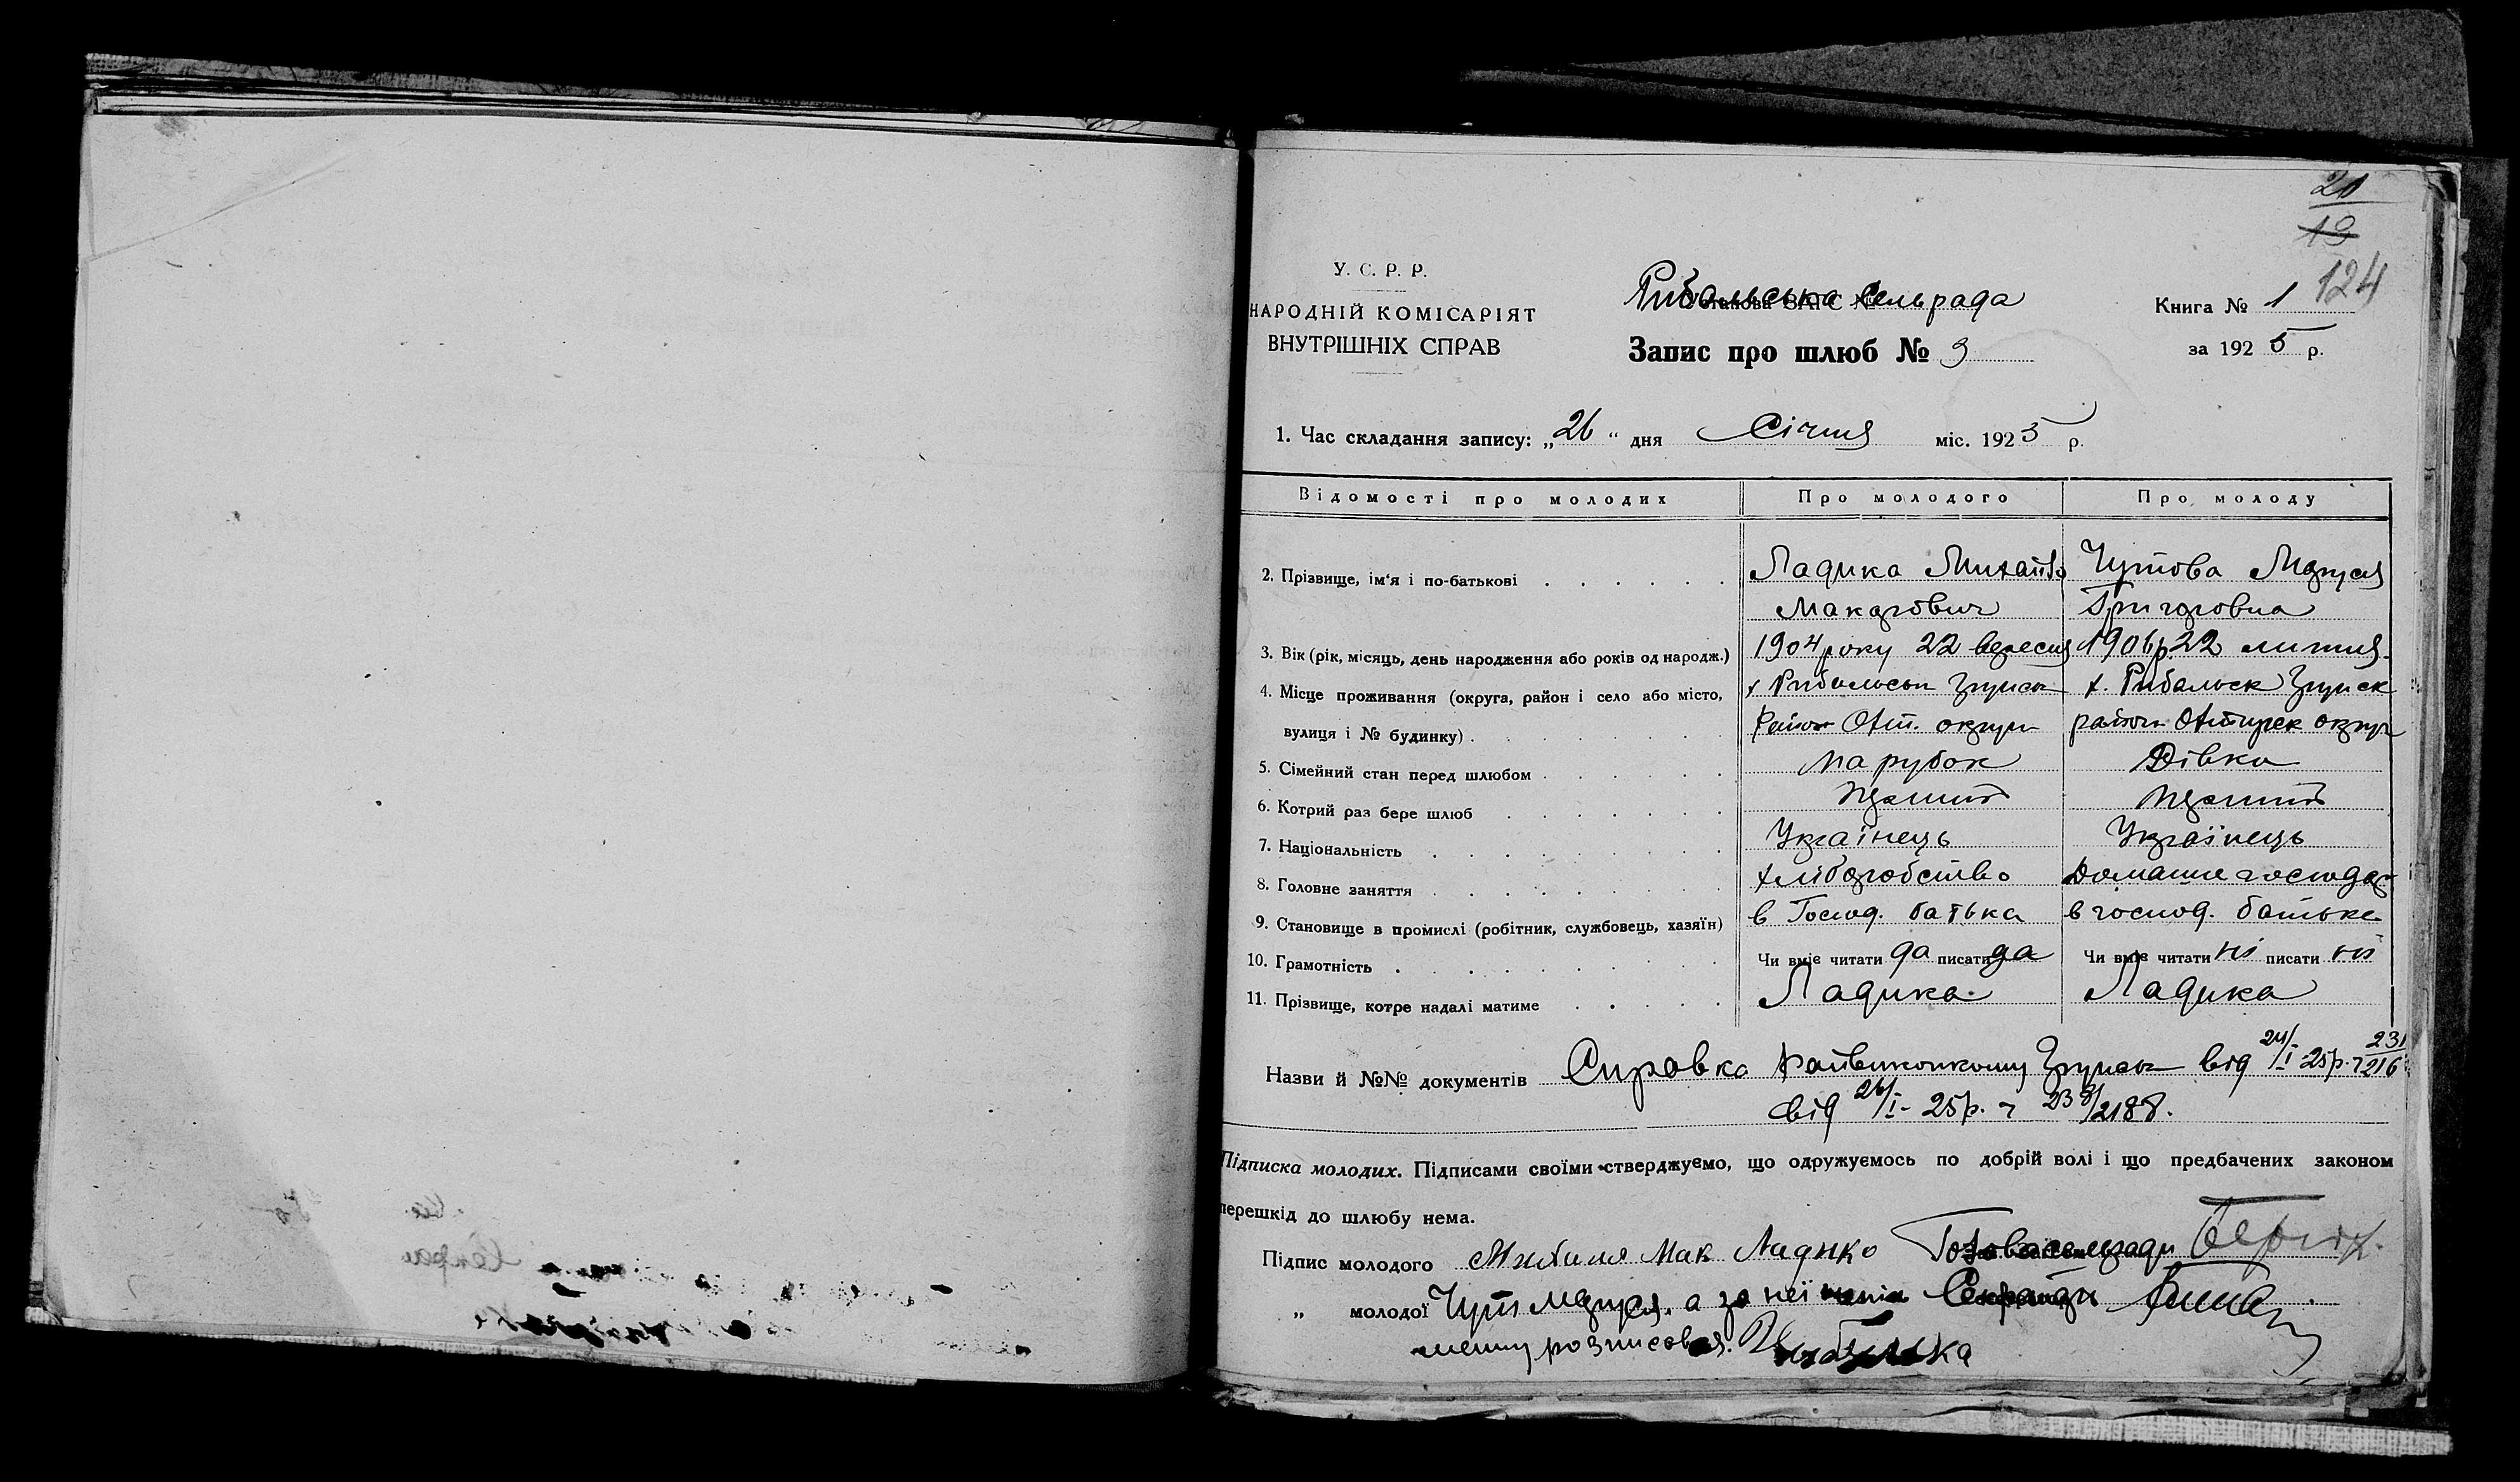 20
19
124
У. С. Р. Р.
НАРОДНІЙ КОМІСАРІЯТ
ВНУТРІШНІХ СПРАВ
Рибальська Сельрада
Запис про шлюб № 9
Книга № 1
за 1925 р.
1. Час складання запису: „26“ дня Січня міс. 1925 р.
Відомості про молодих Про молодого Про молоду
2. Прізвище, ім'я і по-батькові Ладика Михайло Чутова Маруся
Макарович Григоровна
3. Вік (рік, місяць, день народження або років од народж.) 1904 року 22 вересня 1906 р. 22 липня
4. Місце проживання (округа, район і село або місто, х Рибальськ х. Рибальск
вулиця і № будинку) район Охт. округи район Охтирск округ
5. Сімейний стан перед шлюбом Парубок Дівка
6. Котрий раз бере шлюб
7. Національність Українець Українець
8. Головне заняття хліборобство Домашнє господар
9. Становище в промислі (робітник, службовець, хазяїн) в Господ. батька в господ. батька
10. Грамотність Чи вміє читати да писати да Чи вміє читати ні писати ні
11. Прізвище, котре надалі матиме Ладика Ладика
Назви й №№ документів Справка Райвиконкому від 24/I-25р. 231/216
від 26/I-25р. ч 238/2188.
Підписка молодих. Підписами своїми стверджуємо, що одружуємось по добрій волі і що предбачених законом
перешкід до шлюбу нема.
Підпис молодого Михаил Мак Ладико Голова сельради
„ молодої Чут Маруся, а за неї Секретарь
розписовся.